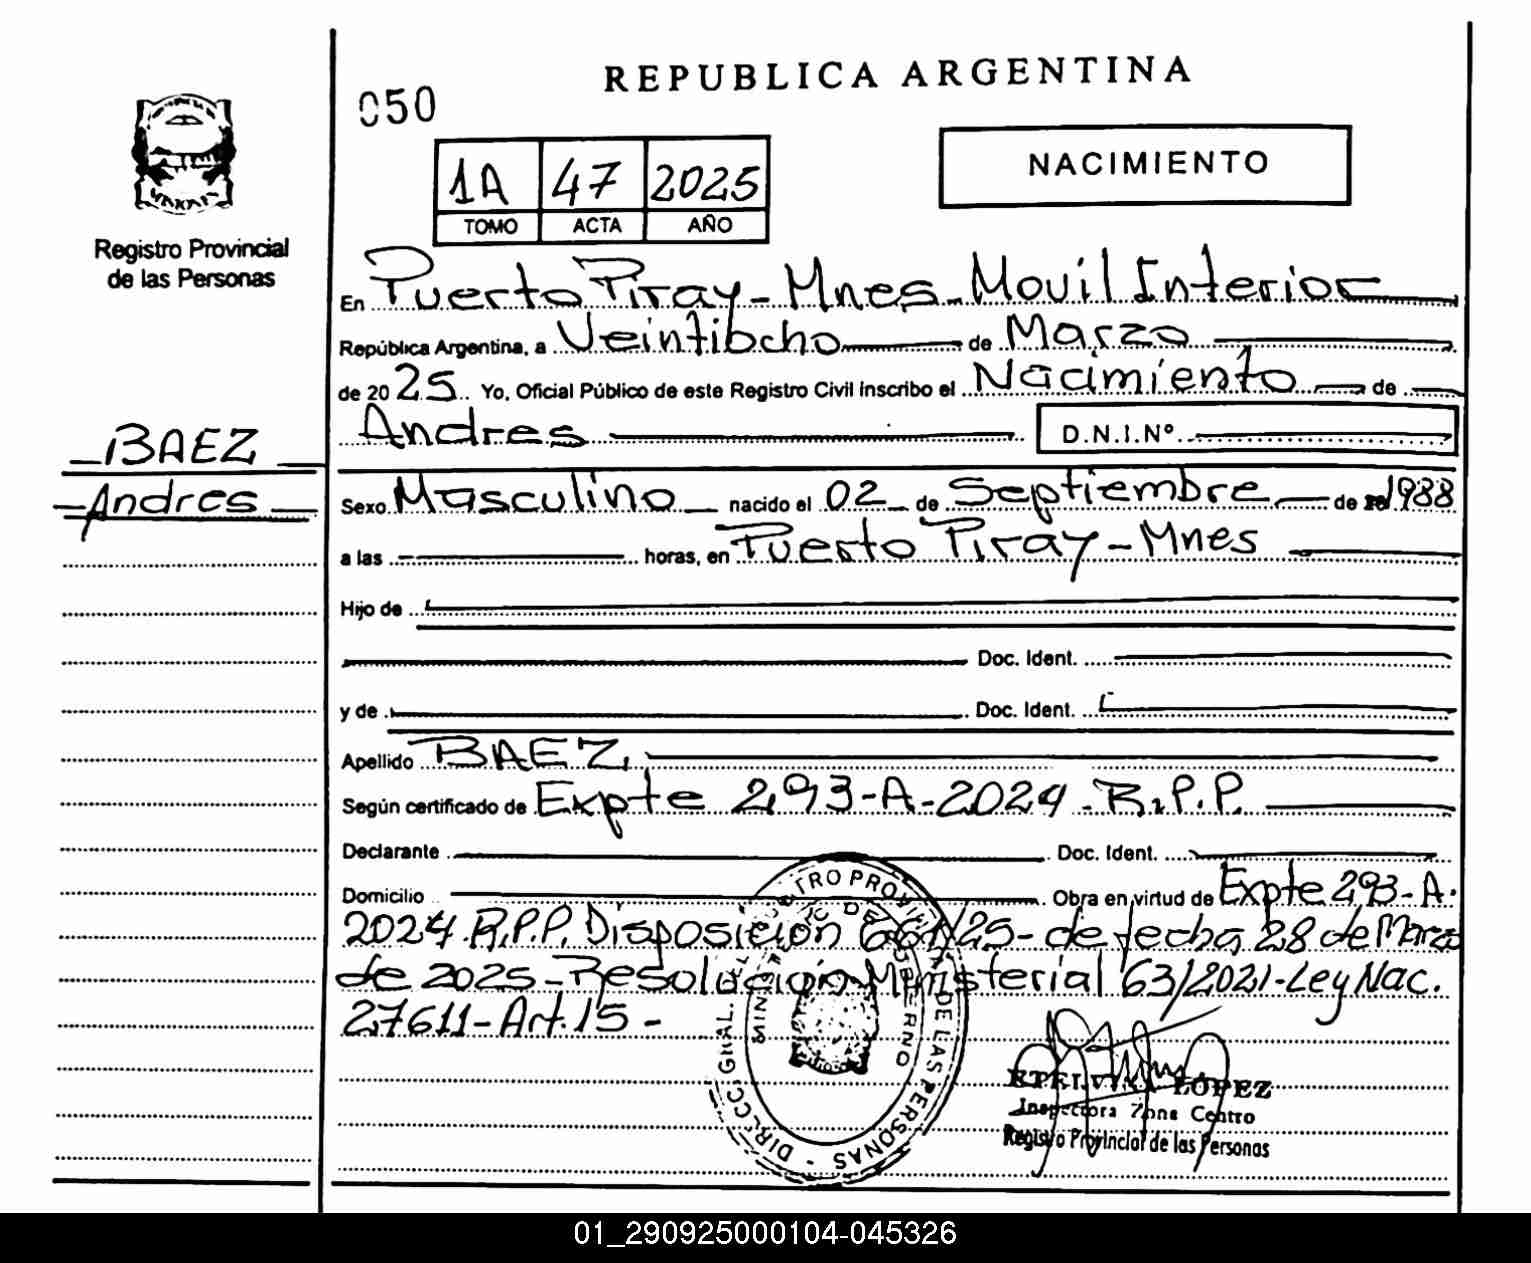 REPUBLICA ARGENTINA
050
1A 47 2025
TOMO ACTA AÑO
NACIMIENTO
Registro Provincial
de las Personas
En Puerto Piray - Mnes - Movil Interior
República Argentina, a Veintiocho de Marzo
de 2025 Yo, Oficial Público de este Registro Civil inscribo el Nacimiento de
Andres D.N.I.Nº
BAEZ
Andres
Sexo Masculino nacido el 02 de Septiembre de 1988
a las horas, en Puerto Piray - Mnes
Hijo de
Doc. Ident.
y de Doc. Ident.
Apellido BAEZ
Según certificado de Expte 293-A-2024 - R.P.P.
Declarante Doc. Ident.
Domicilio Obra en virtud de Expte 293-A-
2024 R.P.P. Disposicion 661/25 - de fecha 28 de Marzo
de 2025 - Resolucion Ministerial 63/2021 - Ley Nac.
27611 - Art. 15 -
DIRECC. GRAL. DEL REGISTRO PROVINCIAL DE LAS PERSONAS
MINISTERIO DE GOBIERNO
ETELVINA LOPEZ
Inspectora Zona Centro
Registro Provincial de las Personas
01_290925000104-045326